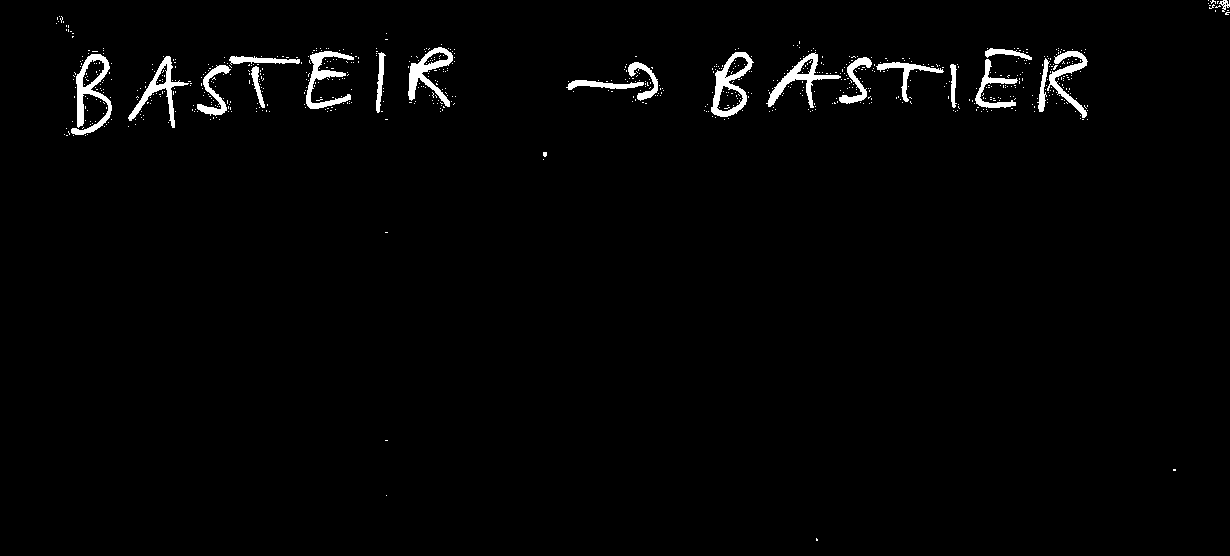 BASTEIR → BASTIER